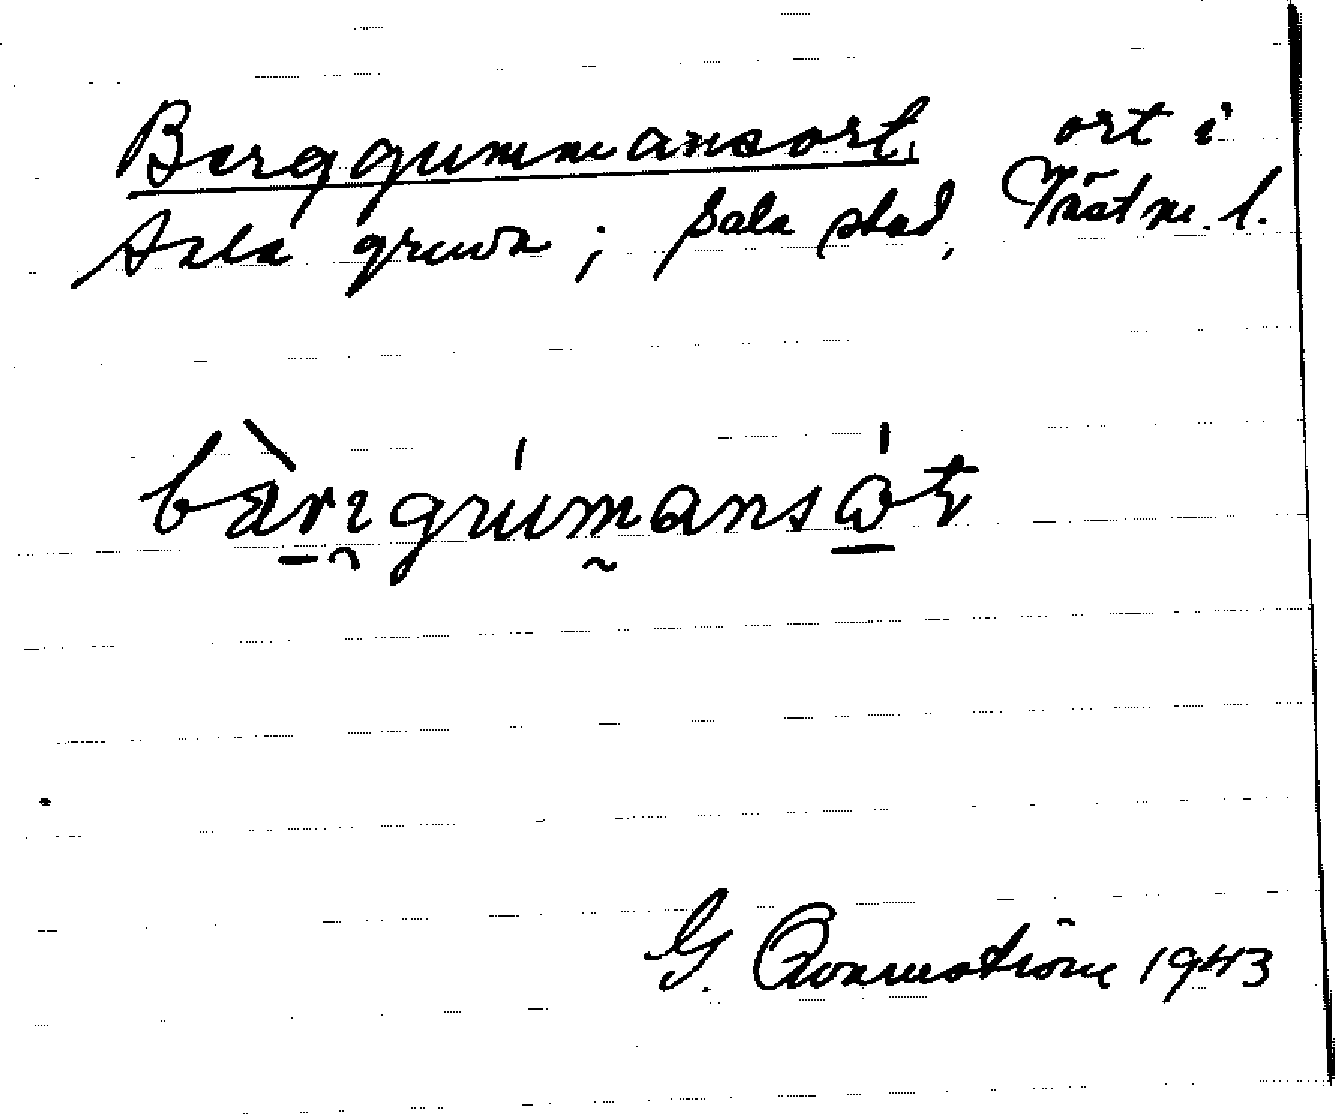 Berggummansort, ort i
Sala gruva; Sala stad, Västm. l.
bàrıgrúmansót
G. Ronnström 1943